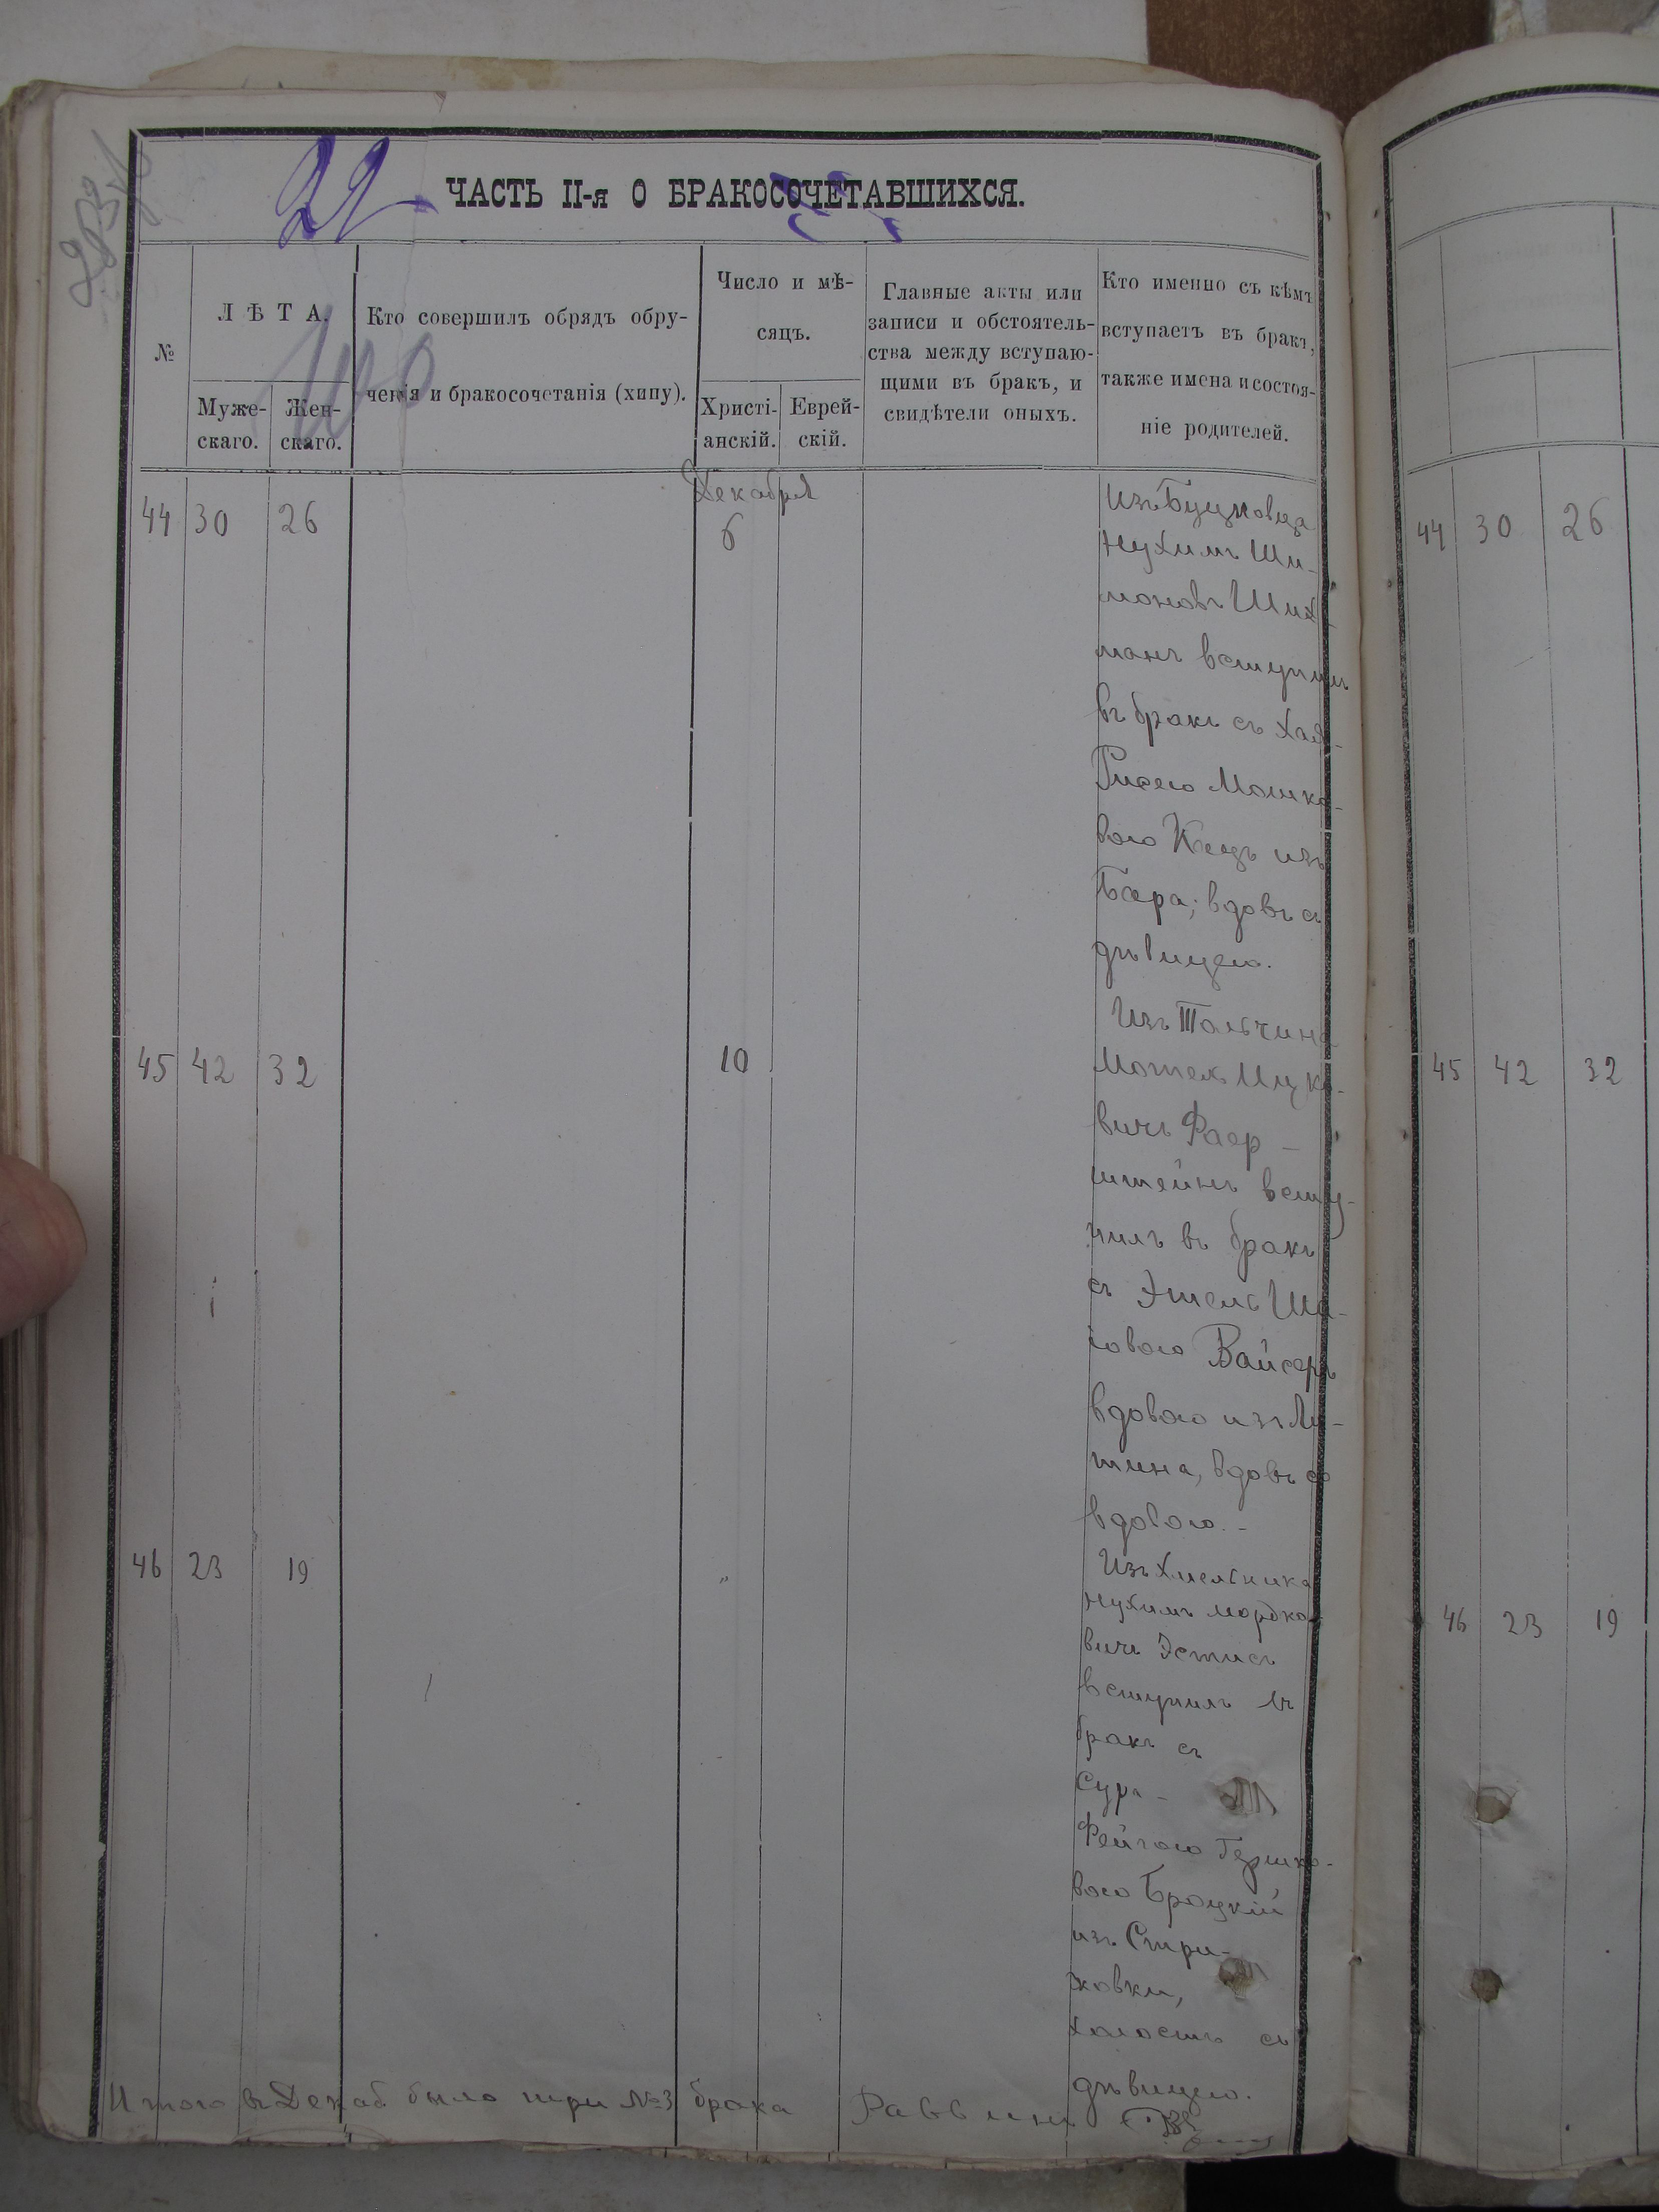 22
ЧАСТЬ II-я О БРАКОСОЧЕТАВШИХСЯ.
№
ЛѢТА.
Муже-
скаго.
Жен-
скаго.
Кто совершилъ обрядъ обру-
ченія и бракосочетанія (хипу).
Число и мѣ-
сяцъ.
Христі-
анскій.
Еврей-
скій.
Главные акты или
записи и обстоятель-
ства между вступаю-
щими въ бракъ, и
свидѣтели оныхъ.
Кто именно съ кѣмъ
вступаетъ въ бракъ,
также имена и состоя-
ніе родителей.
Декабря
44 30 26 6
Изъ Буцковца
Нухимъ Ши-
моновъ Шихъ-
манъ вступилъ
въ бракъ съ Хая-
Рисею Мошко-
вою Кацъ изъ
Бара; вдовъ съ
дѣвицею.
45 42 32 10
Изъ Тальчина
Мотель Ицко-
вичъ Фаер-
штейнъ всту-
пилъ въ бракъ
съ Этель Ша-
іовою Вайсеръ
вдовою изъ Ли-
тина, вдовъ со
вдовою.-
46 23 19 "
Изъ Хмельника
Нухимъ Мордко-
вичъ Эстисъ
вступилъ въ
бракъ съ
Сура-
Фейгою Гершко-
вою Броцкій
изъ Стри-
жовки,
холостъ съ
дѣвицею.
Итого въ Декаб было три №3 брака Раввинъ
44 30 26
45 42 32
46 23 19